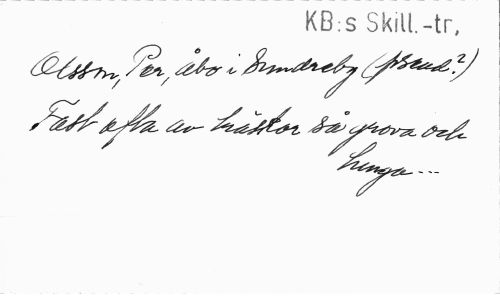 KB:s Skill.-tr,
Olsson, Per, åbo i Sundreby (pseud?)
Fast ofta av hästar så grova och
tunga...